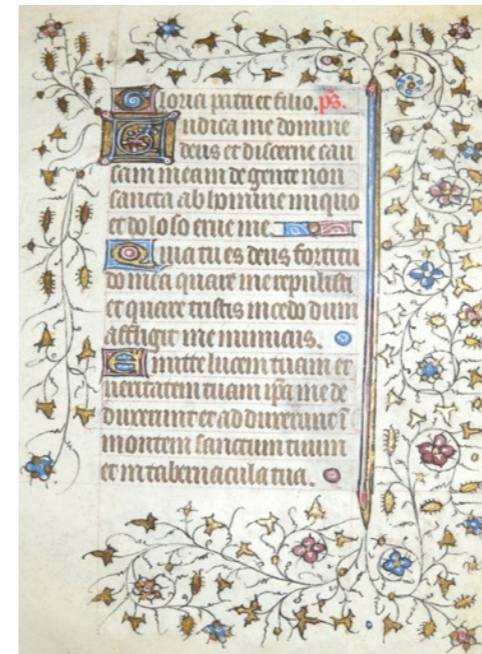 Gloria patri et filio. ps.
Iudica me domine
deus et discerne cau
sam meam de gente non
sancta ab homine iniquo
et doloso erue me.
Quia tu es deus fortitu
do mea quare me repulisti
et quare tristis incedo dum
affligit me inimicus.
Emitte lucem tuam et
veritatem tuam ipa me de
duxerunt et adduxerunt ī
montem sanctum tuum
et in tabernacula tua.